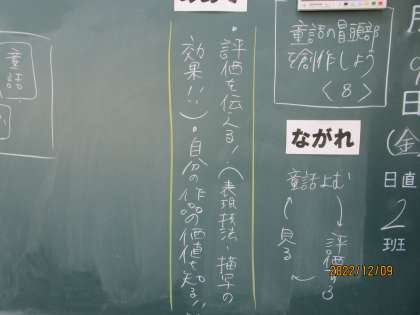 月
日
(金)
日直
2
班
童話の冒頭部
を創作しよう
〈8〉
ながれ
童話よむ
評価する
見る
・評価を伝える!(表現技法・描写の
効果!!)。自分の作品の価値を知る!!
童話
2022/12/09